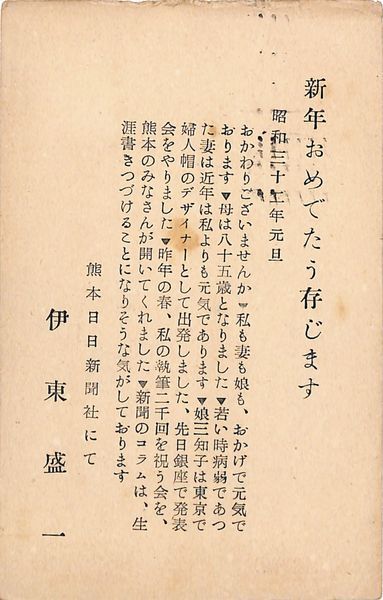 新年おめでたう存じます
昭和三十二年元旦
おかわりございませんか▼私も妻も娘も、おかげで元気で
おります▼母は八十五歳となりました▼若い時病弱であつ
た妻は近年は私よりも元気であります▼娘三知子は東京で
婦人帽のデザイナーとして出発しました、先日銀座で発表
会をやりました▼昨年の春、私の執筆二千回を祝う会を、
熊本のみなさんが開いてくれました▼新聞のコラムは、生
涯書きつづけることになりそうな気がしております
熊本日日新聞社にて
伊東盛一